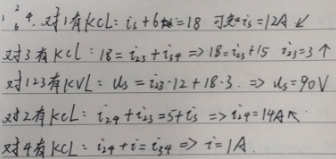 1 2 4
6
对1有KCL: i₅+6=18 可知 i₅=12A ↙
对3有KCL: 18=i₂₃+i₃₄ => 18=i₂₃+15 i₂₃=3↑
对123有KVL: u₅=i₂₃·12+18·3. => u₅=90V
对2有KCL: i₂₄+i₂₃=5+i₅ => i₂₄=14A↖
对4有KCL: i₂₄+i=i₃₄ => i=1A.